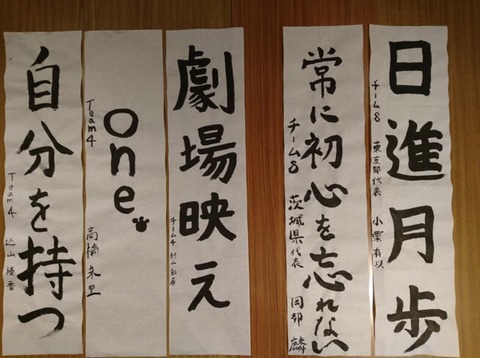 日進月歩
チーム8 東京都代表 小栗有以
常に初心を忘れない
チーム8 茨城県代表 岡部 麟
劇場映え
チーム4 村山彩希
one。
Team4 高橋朱里
自分を持つ
Team4 込山榛香